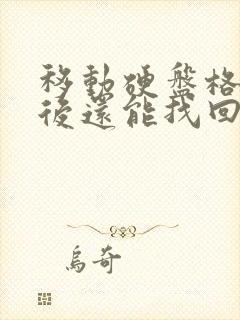 移動硬盤格
後還能找回
烏奇